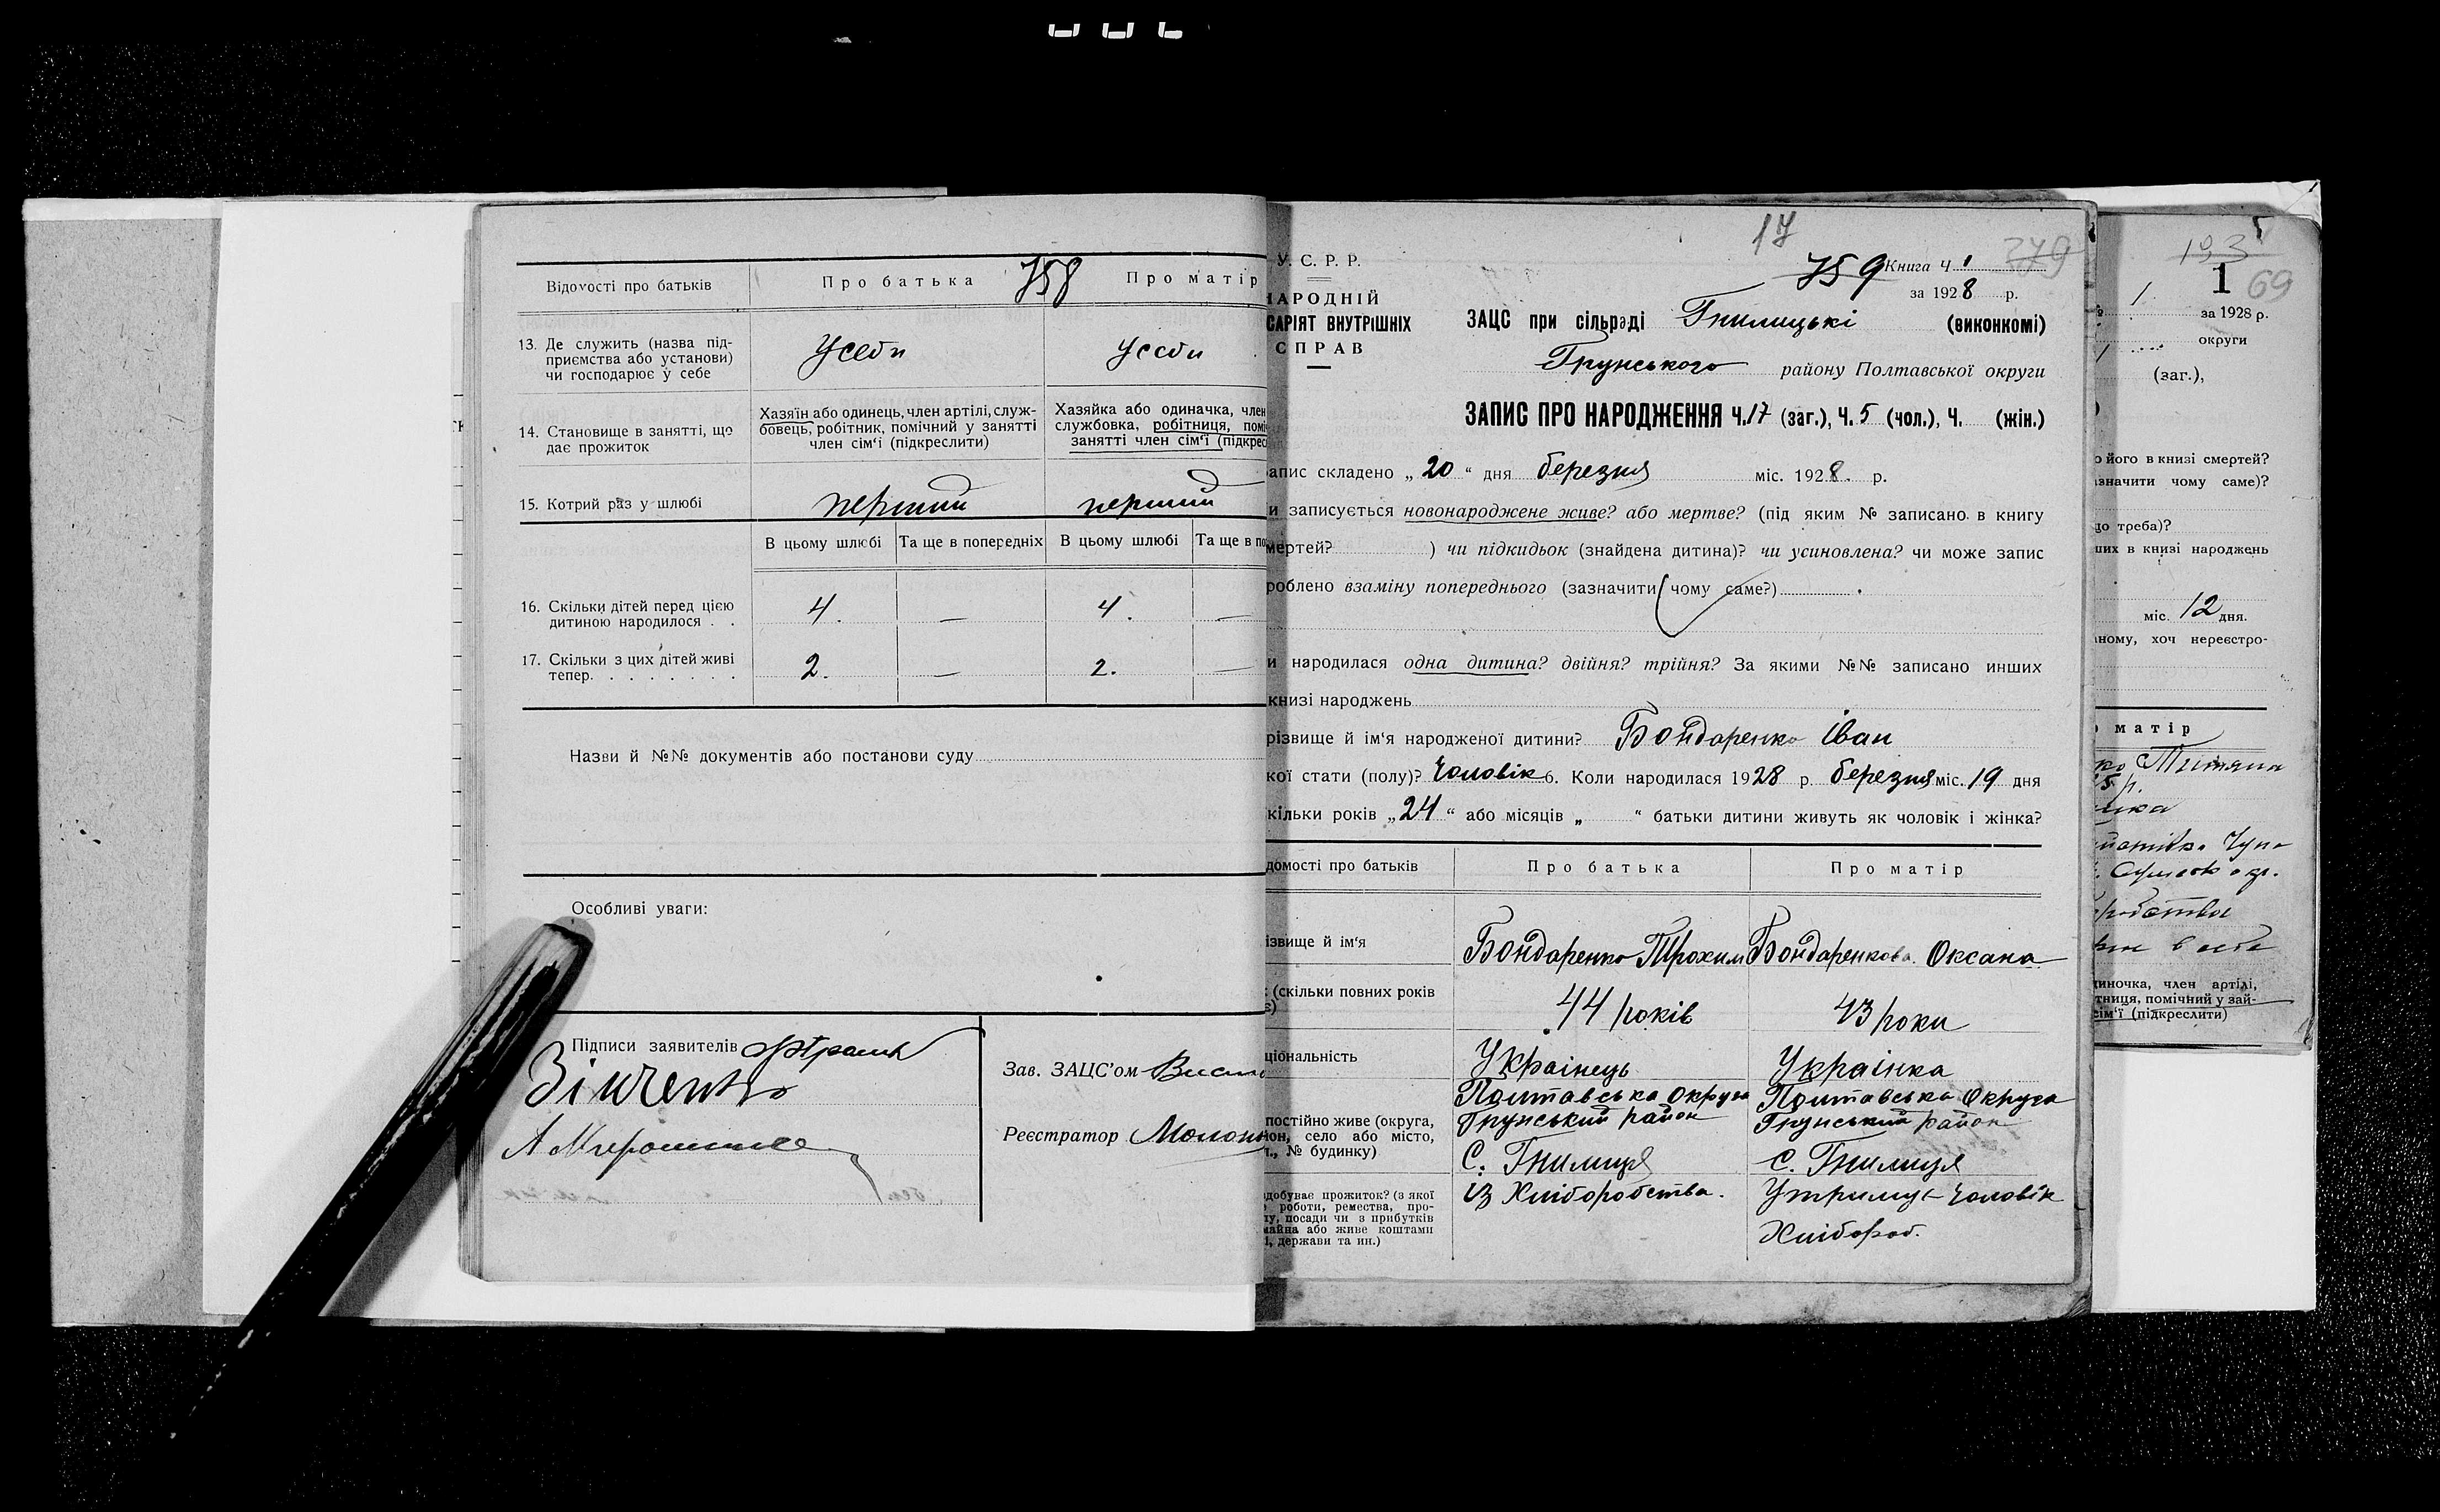 Відомості про батьків
Про батька
758
Про матір
13. Де служить (назва під-
приємства або установи)
чи господарює у себе
Усеби
Усеби
14. Становище в занятті, що
дає прожиток
Хазяїн або одинець, член артілі, служ-
бовець, робітник, помічний у занятті
член сім'ї (підкреслити)
Хазяйка або одиначка, член
службовка, робітниця, помі
занятті член сім'ї (підкрес
15. Котрий раз у шлюбі
перший
перший
В цьому шлюбі
Та ще в попередніх
В цьому шлюбі
Та ще в по
16. Скільки дітей перед цією
дитиною народилося . .
4.
—
4.
—
17. Скільки з цих дітей живі
тепер. . . . . . . .
2.
—
2.
—
Назви й №№ документів або постанови суду
Особливі уваги:
Підписи заявителів
Зінченко
А Мирошниченко
Зав. ЗАЦС'ом
Реєстратор
17
У. С. Р. Р.
НАРОДНІЙ
САРІЯТ ВНУТРІШНІХ
СПРАВ
759 Книга Ч 1
379
за 1928 р.
ЗАЦС при сільраді Гнилицькі (виконкомі)
Грунського району Полтавської округи
ЗАПИС ПРО НАРОДЖЕННЯ Ч. 17 (заг.), Ч. 5 (чол.), Ч. (жін.)
апис складено „ 20 “ дня березня міс. 1928. р.
и записується новонароджене живе? або мертве? (під яким № записано в книгу
мертей? ) чи підкидьок (знайдена дитина)? чи усиновлена? чи може запис
роблено взаміну попереднього (зазначити чому саме?)
и народилася одна дитина? двійня? трійня? За якими №№ записано инших
книзі народжень
різвище й ім'я народженої дитини? Бондаренко Іван
кої стати (полу)? Чоловік 6. Коли народилася 1928 р. березня міс. 19 дня
кільки років „ 24 “ або місяців „ “ батьки дитини живуть як чоловік і жінка?
домості про батьків
Про батька
Про матір
ізвище й ім'я
Бондаренко Трохим
Бондаренкова Оксана
(скільки повних років
44 років
43 роки
ціональність
Українець
Українка
постійно живе (округа,
йон, село або місто,
№ будинку)
Полтавська Округа
Грунський район
С. Гнилиця
Полтавська Округа
Грунський район
с. Гнилиця
здобуває прожиток? (з якої
роботи, ремества, про-
у, посади чи з прибутків
майна або живе коштами
і, держави та ин.)
із Хліборобства.
Утримує Чоловік
Хлібороб.
193
1
69
1.
за 1928 р.
округи
(заг.),
о його в книзі смертей?
азначити чому саме)?
що треба)?
ших в книзі народжень
міс. 12 дня.
ному, хоч нереєстро-
матір
Титяна
5 р.
иночка, член артілі,
тниця, помічний у зай-
сім'ї (підкреслити)